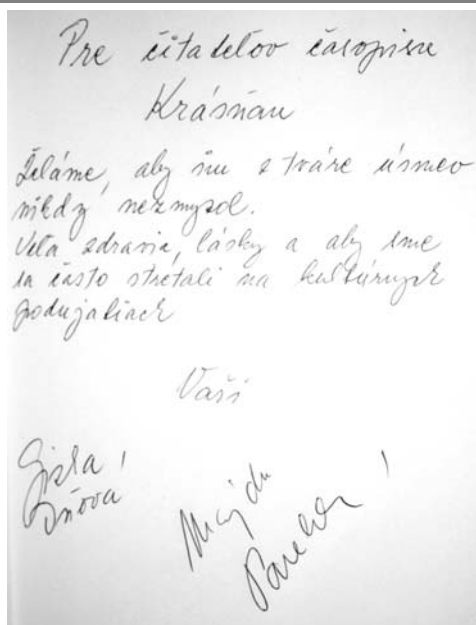 Pre čitateľov časopisu
Krásňan
Želáme, aby im z tváre úsmev
nikdy nezmyzol.
Veľa zdravia, lásky a aby sme
sa často stretali na kultúrnych
podujatiach
Vaši
Gizka !
Oňová
Majda
!